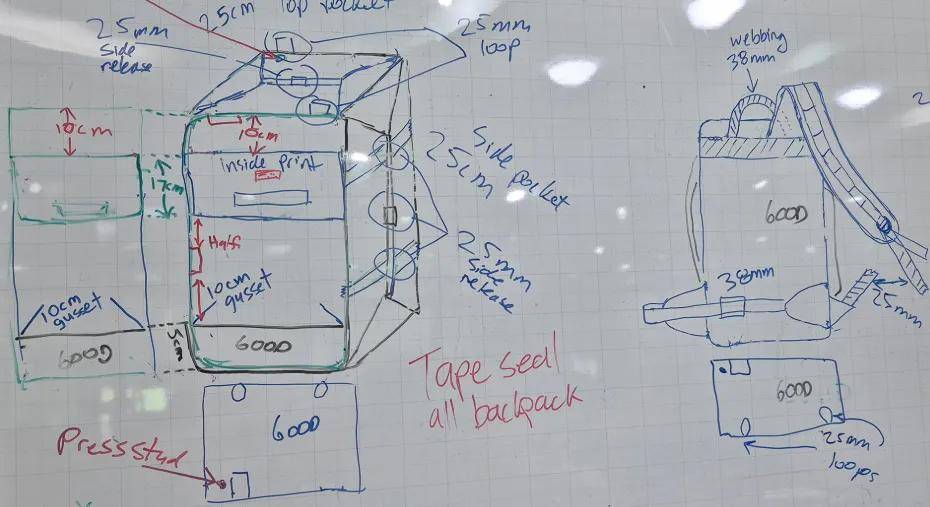 25cm Top pocket
25mm
side
release
25mm
loop
10cm
10cm
17cm
inside print
Side pocket
25cm
Half
10cm
gusset
10cm
gusset
25mm
side
release
600D
5cm
600D
Tape seal
all backpack
600D
Press stud
webbing
38mm
600D
38mm
25mm
600D
25mm
loops
2